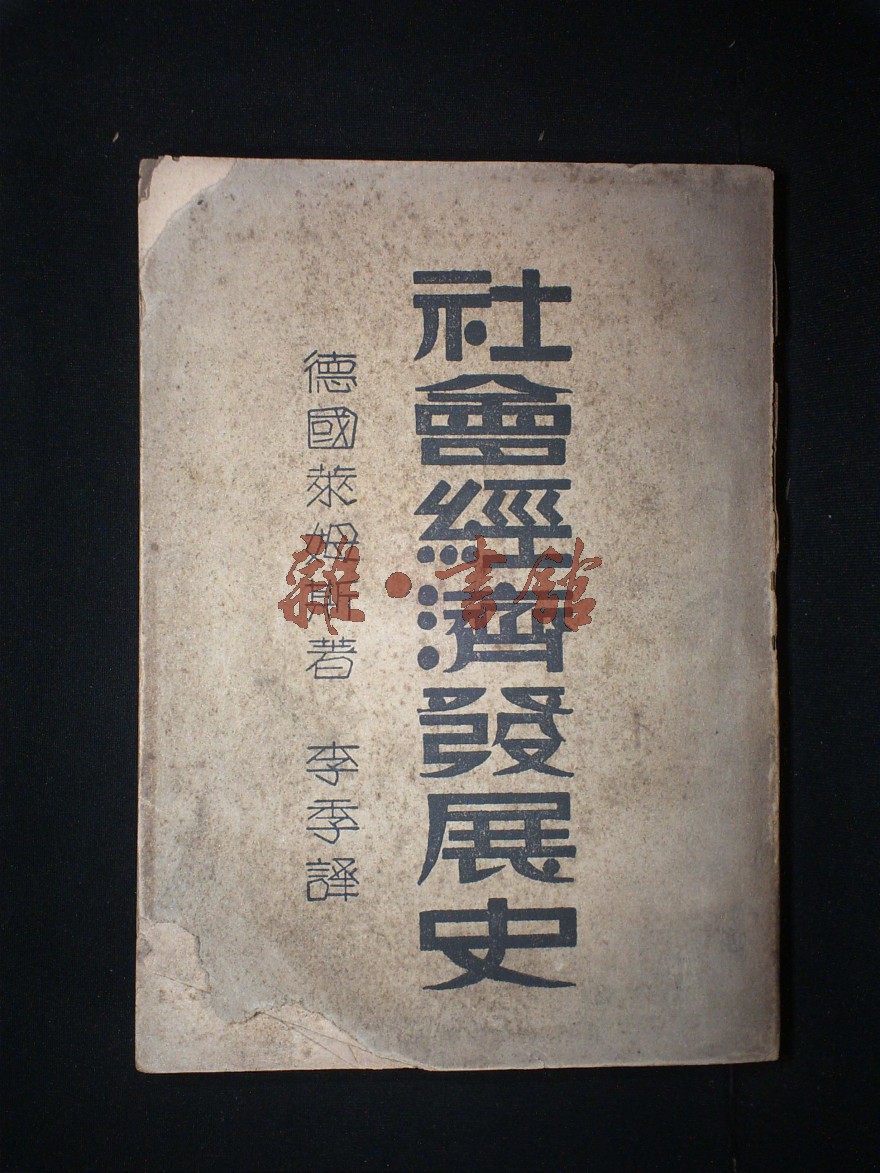 社會經濟發展史
德國萊姆斯著 李季譯
雜·書館